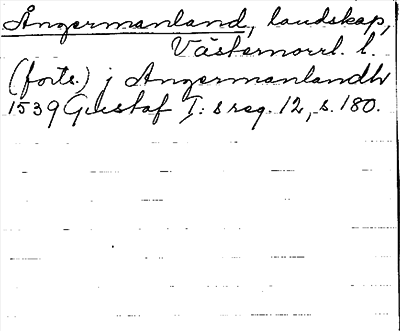 Ångermanland, landskap,
Västernorrl. l.
(forts.) j Angermanlandh
1539 Gustaf I:s reg. 12, s. 180.